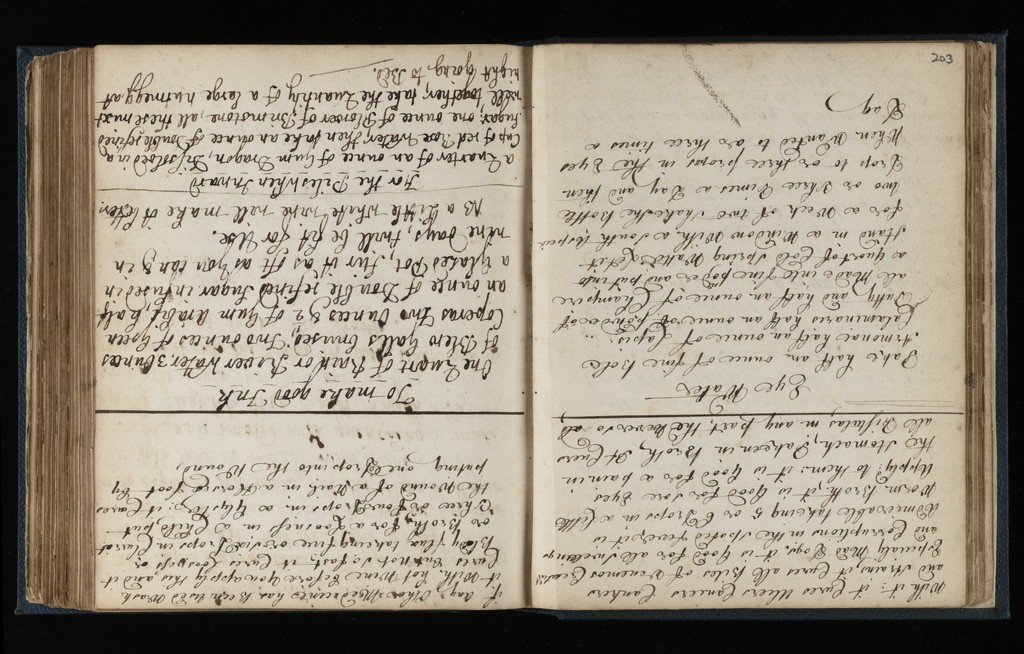 With it: it Cures Ulcers Cancers Cankers
and Strains, it Cures all Bites of Venemos
Espicialy Mad Dogs, it is Good for all Swellings
and Corruptions in the spoted feaver it is
Admirable takeing 5 or 6 Drops in a little
Worm Broth, it is Good for sore Eyes
Upply: to them: it is Good for a pain in
the Stomach, Takeen in Broth, It Cures
all Fistulas in any part
Eye Water
Take half an ounce of fine Bole
Armonac half an ounce of Lapis
Calaminaris half an ounce of powder of
Tutty and half an ounce of Champire
all Made into fine powder and put into
a quart of Cold Spring Water Let it
Stand in a Window With a South
for a Week or two Shake the bottle
two or Three Times a Day and then
Drop to or three drops in the Eyes
When Wanted to or three times a
Day
if any Other Meddicines has Been Used Wash
it With hot Wine Before you apply this, and it
Cures But not so fast it Cures Loosness or
flux takeing five or six Drops in Clarret
or Broth, for a Loosness in a Child put
Three or Four Drops in a Glyster: it Cures
the Wound of a Nail in a Horses foot by
puting one Drop, into the Wound,
To make good Ink
One Quart of Rain or River Water 3 Ounces
of Blew Galls bruised, Two ounces of Green
Coperas Two Ounces & ½ of Gum Arabic, half
an ounce of Double refined Sugar infused in
a Glazed Pot, stir it as oft as you can & in
nine Days, twill be fit for Use.
NB a Little White wine will make it better.
For the Piles when Inward
a Quarter of an ounce of Gum Dragon, Dissolved in a
Cup of red Rose Water, then take an ounce of Double refined
Sugar, one ounce of Flower of Brimstone, all these mixt
well together; take the Quantity of a large nutmegg at
night going to Bed.
203